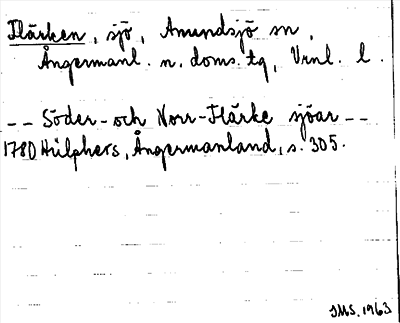 Flärken, sjö, Amundsjö sn,
Ångermanl. n. doms. tg, Vrnl. l.
-- Söder- och Norr-Flärke sjöar --
1780 Hülphers, Ångermanland, s. 305.
IMS. 1963